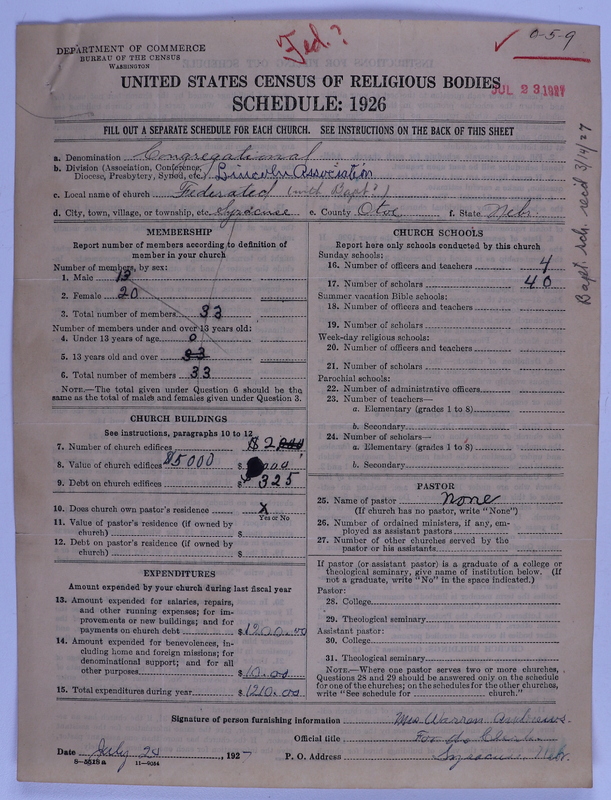 Fed.?
✓ 0-5-9
DEPARTMENT OF COMMERCE
BUREAU OF THE CENSUS
WASHINGTON
UNITED STATES CENSUS OF RELIGIOUS BODIES
JUL 23 1927
SCHEDULE: 1926
FILL OUT A SEPARATE SCHEDULE FOR EACH CHURCH. SEE INSTRUCTIONS ON THE BACK OF THIS SHEET
Bapt. sch. rec'd 3/14/27
a. Denomination Congregational
b. Division (Association, Conference, Diocese, Presbytery, Synod, etc.) Lincoln Association
c. Local name of church Federated (with Bapt?)
d. City, town, village, or township, etc. Syracuse e. County Otoe f. State Nebr.
MEMBERSHIP
Report number of members according to definition of
member in your church
Number of members, by sex:
1. Male 13
2. Female 20
3. Total number of members 33
Number of members under and over 13 years old:
4. Under 13 years of age 0
5. 13 years old and over 33
6. Total number of members 33
NOTE.—The total given under Question 6 should be the
same as the total of males and females given under Question 3.
CHURCH BUILDINGS
See instructions, paragraphs 10 to 12
7. Number of church edifices
8. Value of church edifices $5000 $
9. Debt on church edifices $ 325
10. Does church own pastor's residence X
Yes or No
11. Value of pastor's residence (if owned by
church) $
12. Debt on pastor's residence (if owned by
church) $
EXPENDITURES
Amount expended by your church during last fiscal year
13. Amount expended for salaries, repairs,
and other running expenses; for im-
provements or new buildings; and for
payments on church debt $1200.00
14. Amount expended for benevolences, in-
cluding home and foreign missions; for
denominational support; and for all
other purposes $10.00
15. Total expenditures during year $1210.00
CHURCH SCHOOLS
Report here only schools conducted by this church
Sunday schools:
16. Number of officers and teachers 4
17. Number of scholars 40
Summer vacation Bible schools:
18. Number of officers and teachers
19. Number of scholars
Week-day religious schools:
20. Number of officers and teachers
21. Number of scholars
Parochial schools:
22. Number of administrative officers
23. Number of teachers—
a. Elementary (grades 1 to 8)
b. Secondary
24. Number of scholars—
a. Elementary (grades 1 to 8)
b. Secondary
PASTOR
25. Name of pastor None
(If church has no pastor, write "None")
26. Number of ordained ministers, if any, em-
ployed as assistant pastors
27. Number of other churches served by the
pastor or his assistants
If pastor (or assistant pastor) is a graduate of a college or
theological seminary, give name of institution below. (If
not a graduate, write "No" in the space indicated.)
Pastor:
28. College
29. Theological seminary
Assistant pastor:
30. College
31. Theological seminary
NOTE.—Where one pastor serves two or more churches,
Questions 28 and 29 should be answered only on the schedule
for one of the churches; on the schedules for the other churches,
write "See schedule for church."
Signature of person furnishing information Mrs. Warren
Official title For the Clerk
Date July 24, 1927 P. O. Address Syracuse Nebr.
8—5518a 11—9054